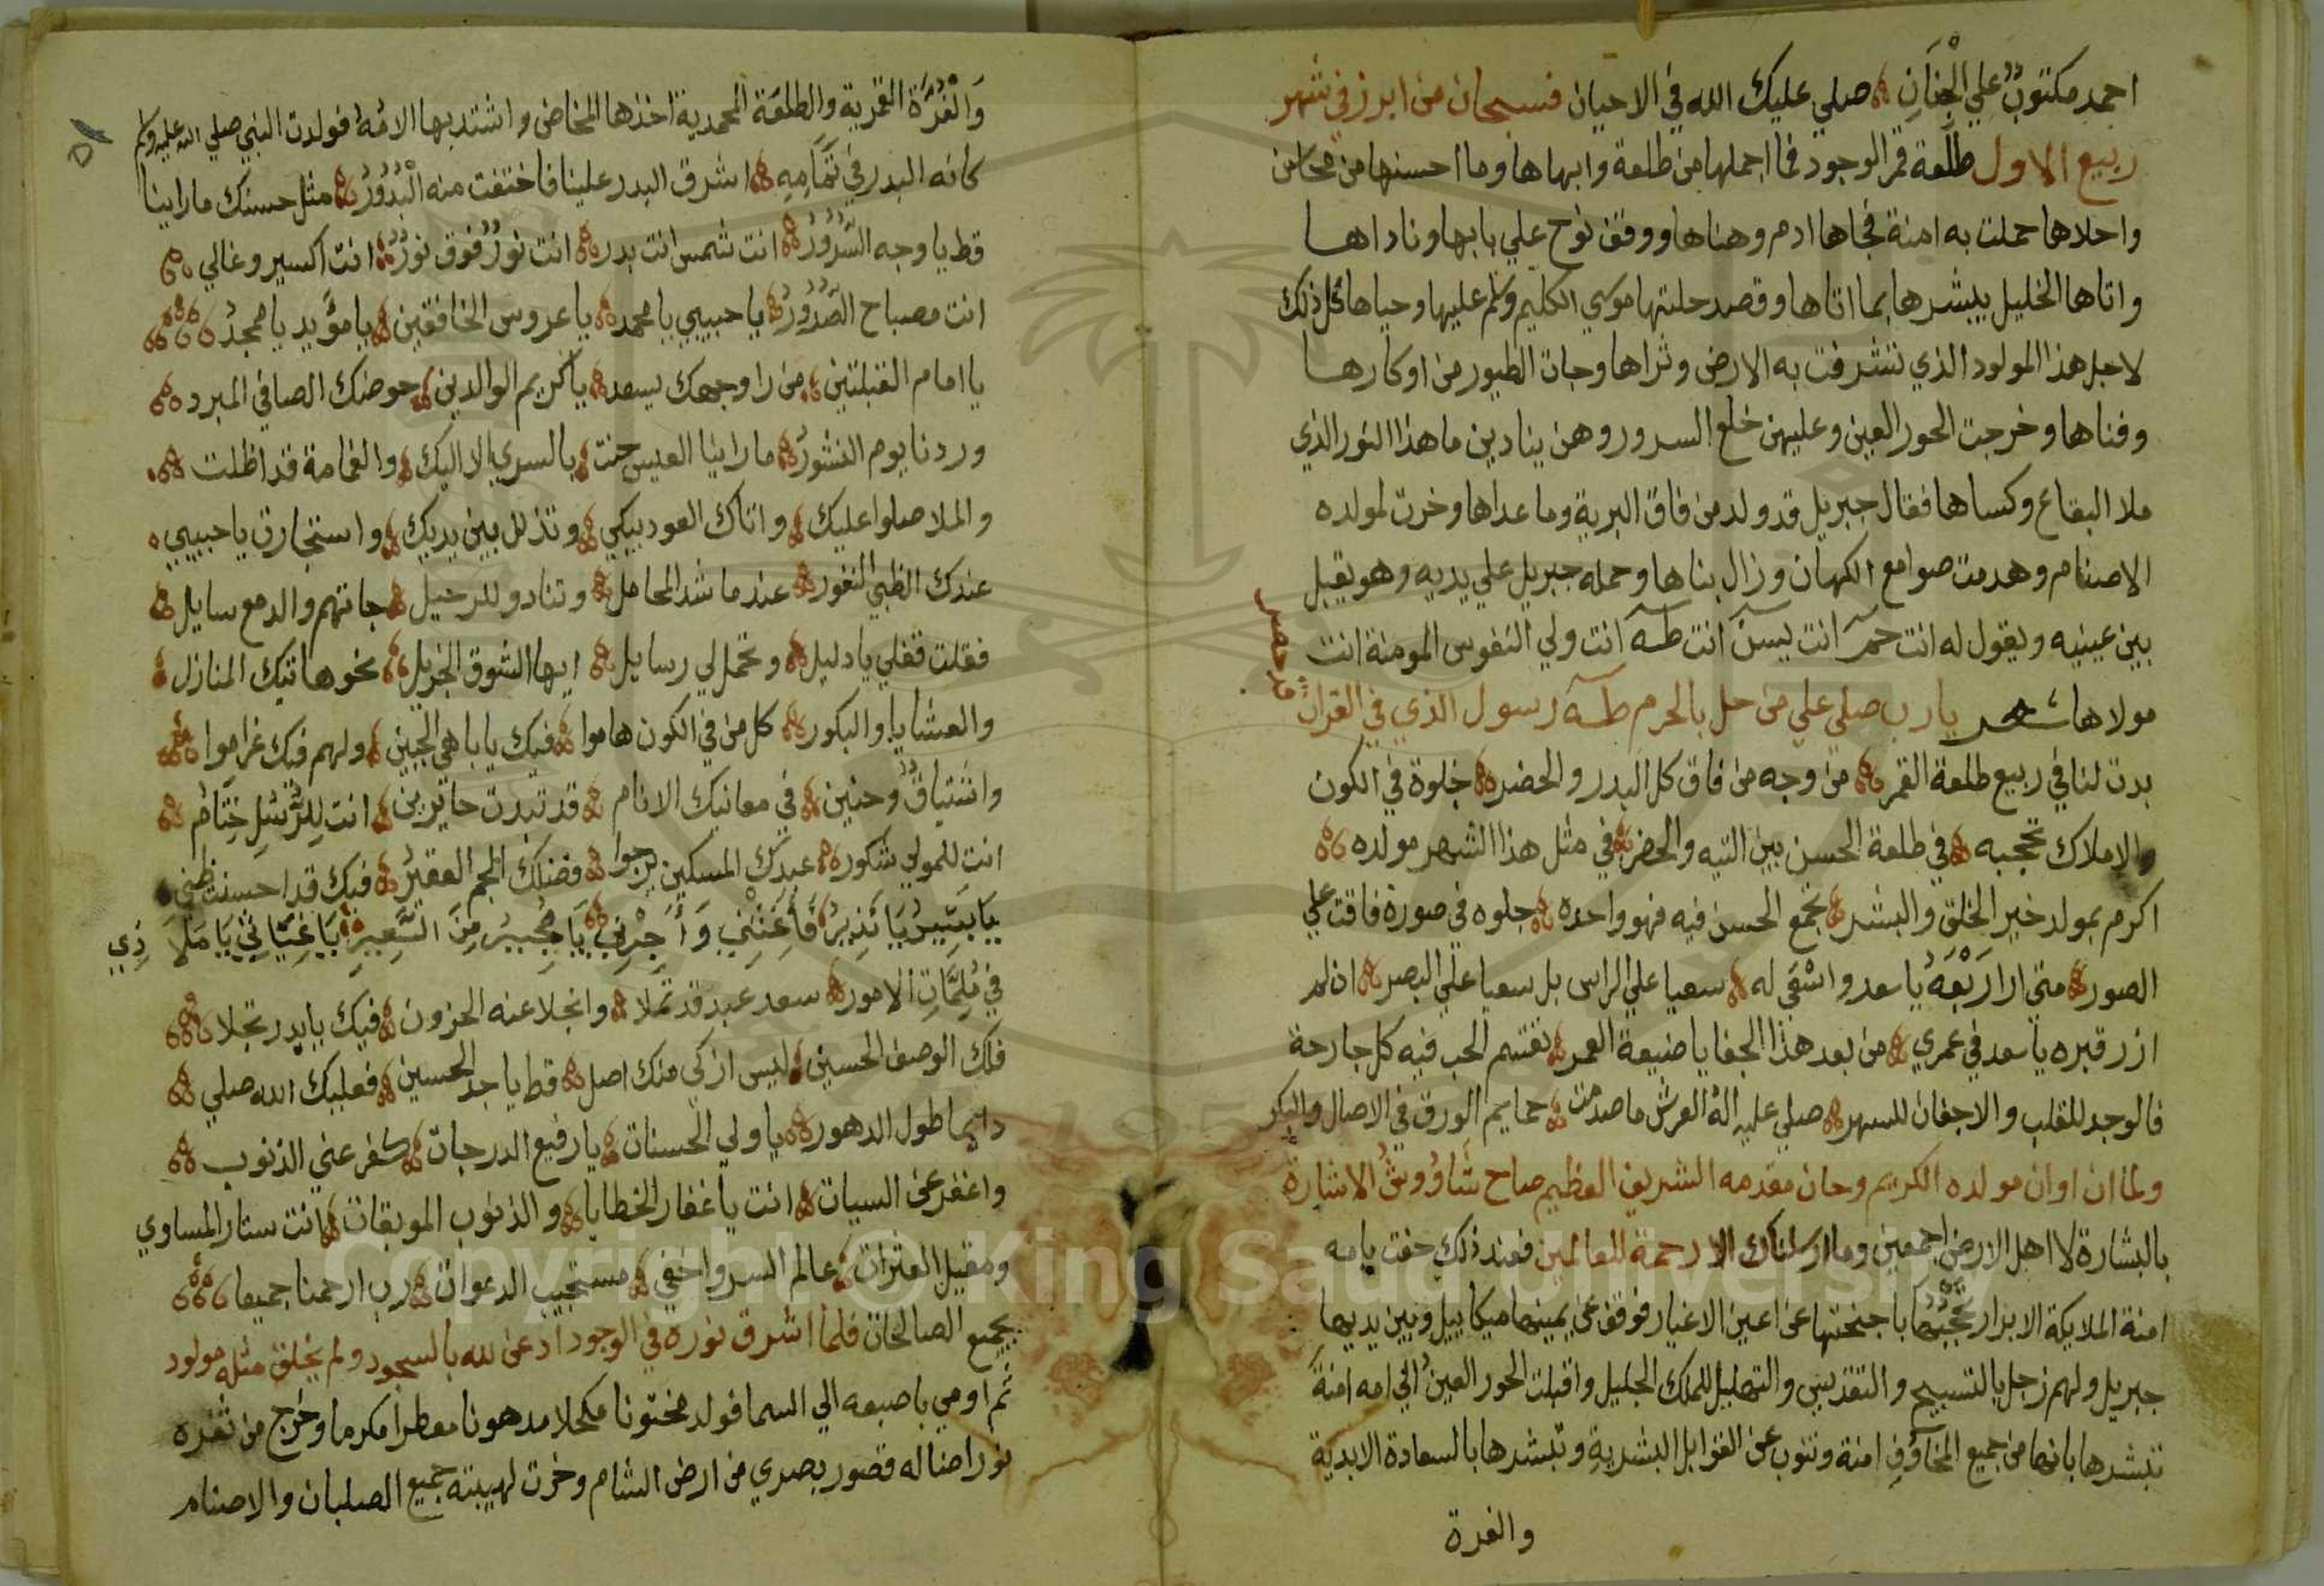 احمد مكتوبٌ علي الْجِنَانِ صلي عليك الله في الاحيان فسبحان من ابرز في شهر
ربيع الاول طلعة قمر الوجود فما اجملها من طلعة وابهاها وما احسنها من محاسن
واحلاها حملت به امنة فجاها ادم وهناها ووقف نوح علي بابها وناداها
واتاها الخليل يبشرها بما اتاها وقصد حلتها موسي الكليم وسلم عليها وحياها كل ذلك
لاجل هذا المولود الذي تشرفت به الارض وثراها وجات الطيور من اوكارها
وفناها وخرجت الحور العين وعليهن خلع السرور وهن ينادين ما هذا النور الذي
ملا البقاع وكساها فقال جبريل قد ولد من فاق البرية وما عداها وخرت لمولده
الاصنام وهدمت صوامع الكهان وزال بناها وحمله جبريل علي يديه وهو يقبل
بين عينيه ويقول له انت حم انت يسن انت طه انت ولي النفوس المومنة انت
مولاها شعر يارب صلي علي من حل بالحرم طه رسول الذي في القران
بدت لنا في ربيع طلعة القمر من وجه من فاق كل البدر والحضر جلوة في الكون
والاملاك تحجبه في طلعة الحسن بين التيه والحضر في مثل هذا الشهر مولده
اكرم بمولد خير الخلق والبشر تجمع الحسن فيه فهو واحده جلوه في صورة فاقت علي
الصور متي ارا رَبْعَهُ يا سعد واسْعَي له سعيا علي الراس بل سعيا علي البصر ان لم
ازر قبره يا سعد في عمري من بعد هذا الجفا يا ضيعة العمر تقتسم الحب فيه كل جارحة
فالوجد للقلب والاجفان للسهر صلي عليه اله العرش ما صدحت حمايم الورق في الاصال والبكر
ولما ان اوان مولده الكريم وحان مقدمه الشريف العظيم صاح الاشارة
بالبشارة لا اهل الارض اجمعين وما ارسلناك الا رحمة للعالمين فعند ذلك حفت بامه
امنة الملايكة الابرار تحجبها باجنحتها عن اعين الاغيار فوقف عن يمينها ميكاييل وبين يديها
جبريل ولهم زجل بالتسبيح والتقديس والتهليل للملك الجليل واقبلت الحور العين الي امه امنة
تبشرها بانها من جميع المخاوف امنة وتنوب عن القوابل البشرية وتبشرها بالسعادة الابدية
والغرة
وَالْغُرَّة القمرية والطلعة المحمدية اخذها المخاض واشتد بها الامُ فولدت النبي صلي الله عليه وسلم
كانه البدر في تَمَامِهِ اشرق البدر علينا فاختفت منه الْبُدُوُرُ مثل حسنك ما راينا
قط يا وجه السُّرُوُرُ انت شمس انت بدر انت نورٌ فوق نورٌ انت اكسير وغالي
انت مصباح الصُّدُوُرُ يا حبيبي يا محمد يا عروس الخافقين يا مؤيد يا ممجدُ
يا امام القبلتين من را وجهك يسعد يا كريم الوالدين حوضك الصافي المبرد
وردنا يوم النشور ما راينا العيس حنت بالسري الا اليك والغمامة قد اظلت
والملا صلوا عليك واتاك العود يبكي وتذلل بين يديك واستجارت يا حبيبي
عندك الظبي النفور عندما شد المحامل وتنادو للرحيل جاتهم والدمع سايل
فقلت قفلي يا دليل وتحمل لي رسايل ايها الشوق الجزيل نحو هاتيك المنازل
والعشايا والبكور كل من في الكون هاموا فيك يا باهي الجبين ولهم فيك غراموا
واشتياقٌ وحنين في معانيك الانام قد تبدت حايرين انت لِلرُّسُلِ خِتَامُ
انت للمولي شكور عبدك المسكين يرجوا فضلك الجم الغفير فيك قد احسنت ظني
يَا بَشِيرُ يَا نَذِيرُ فَأَغِثْنِي وَأَجِرْنِي يَا مُجِيرُ مِنَ السَّعِيرِ يَا غِيَاثِي يَا مَلَاذِي
في مُلِمَّاتِ الامور سعد عبد قد تملا وانجلا عنه الحزون فيك يا بدر تجلا
فلك الوصف الحسين ليس ازكي منك اصل قط يا جد الحسين فعليك الله صلي
دايما طول الدهور يا ولي الحسنات يا رفيع الدرجات كفر عني الذنوب
واغفر عن السيات انت يا غفار الخطايا والذنوب الموبقات انت ستار المساوي
ومقيل العثرات عالم السر واخفي مستجيب الدعوات رب ارحمنا جميعا
بجميع الصالحات فلما اشرق نوره في الوجود ادعن لله بالسجود ولم يخلق مثله مولود
ثم اومي باصبعه الي السما فولد مختونا مكحلا مدهونا معطرا مكرما وخرج من ثغره
نور اضا له قصور بصري من ارض الشام وخرت لهيبته جميع الصلبان والاصنام
Copyright © King Saud University